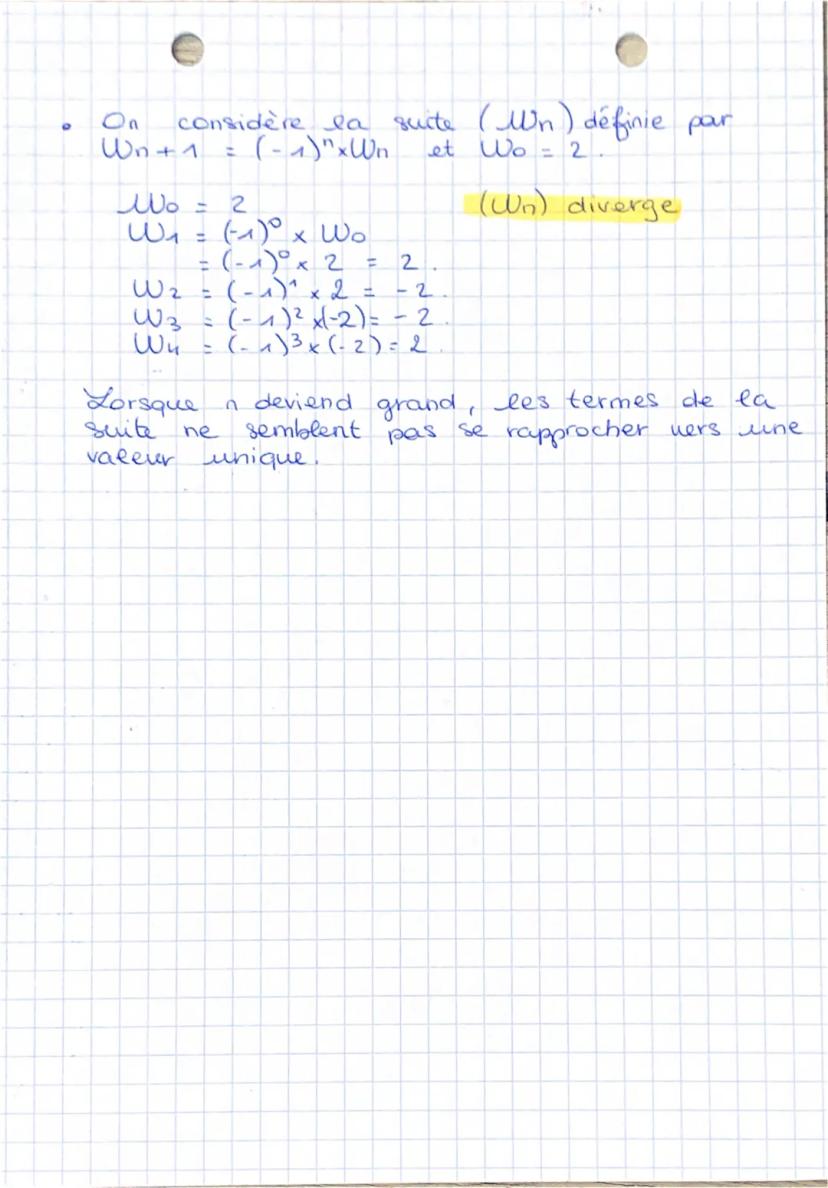 • On considère la suite (Wn) définie par
Wn+1 = (-1)ⁿ×Wn et W₀ = 2.
W₀ = 2
(Wn) diverge
W₁ = (-1)⁰ × W₀
= (-1)⁰ × 2 = 2.
W₂ = (-1)¹ × 2 = -2.
W₃ = (-1)² ×(-2)= -2.
W₄ = (-1)³ × (-2) = 2.
Lorsque n deviend grand, les termes de la
suite ne semblent pas se rapprocher vers une
valeur unique.